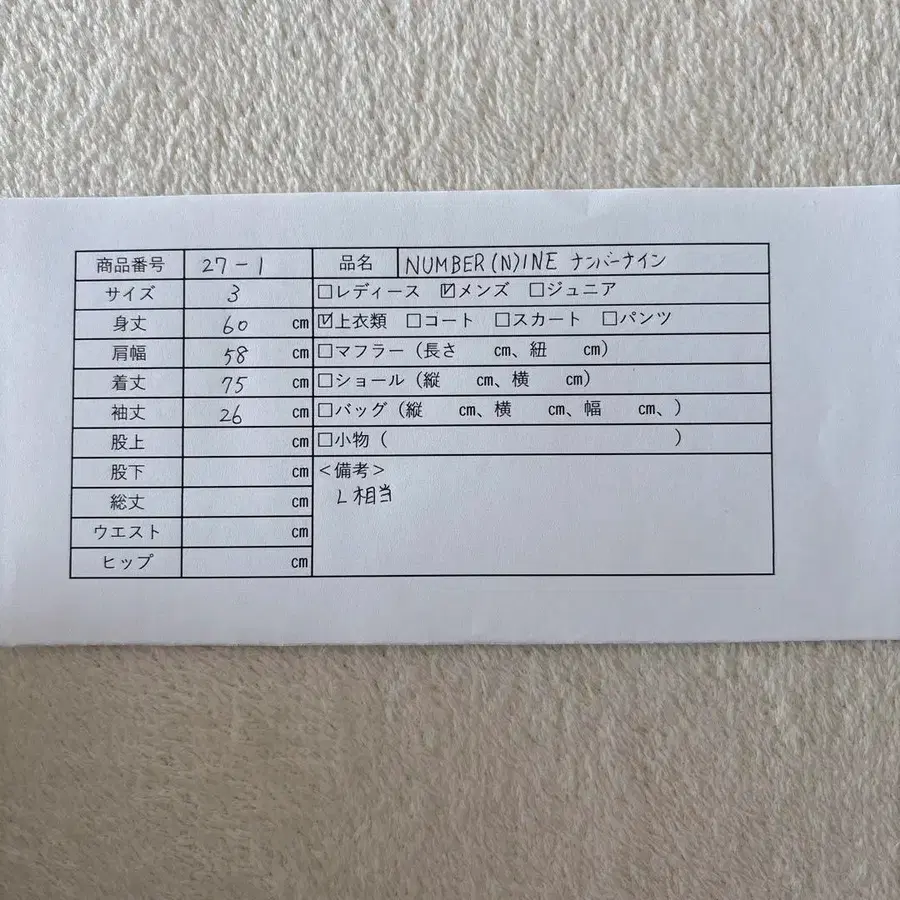 商品番号 27-1 品名 NUMBER(N)INE ナンバーナイン
サイズ 3 □レディース ☑メンズ □ジュニア
身丈 60 cm ☑上衣類 □コート □スカート □パンツ
肩幅 58 cm □マフラー（長さ cm、紐 cm）
着丈 75 cm □ショール（縦 cm、横 cm）
袖丈 26 cm □バッグ（縦 cm、横 cm、幅 cm、）
股上 cm □小物（ ）
股下 cm ＜備考＞
L相当
総丈 cm
ウエスト cm
ヒップ cm